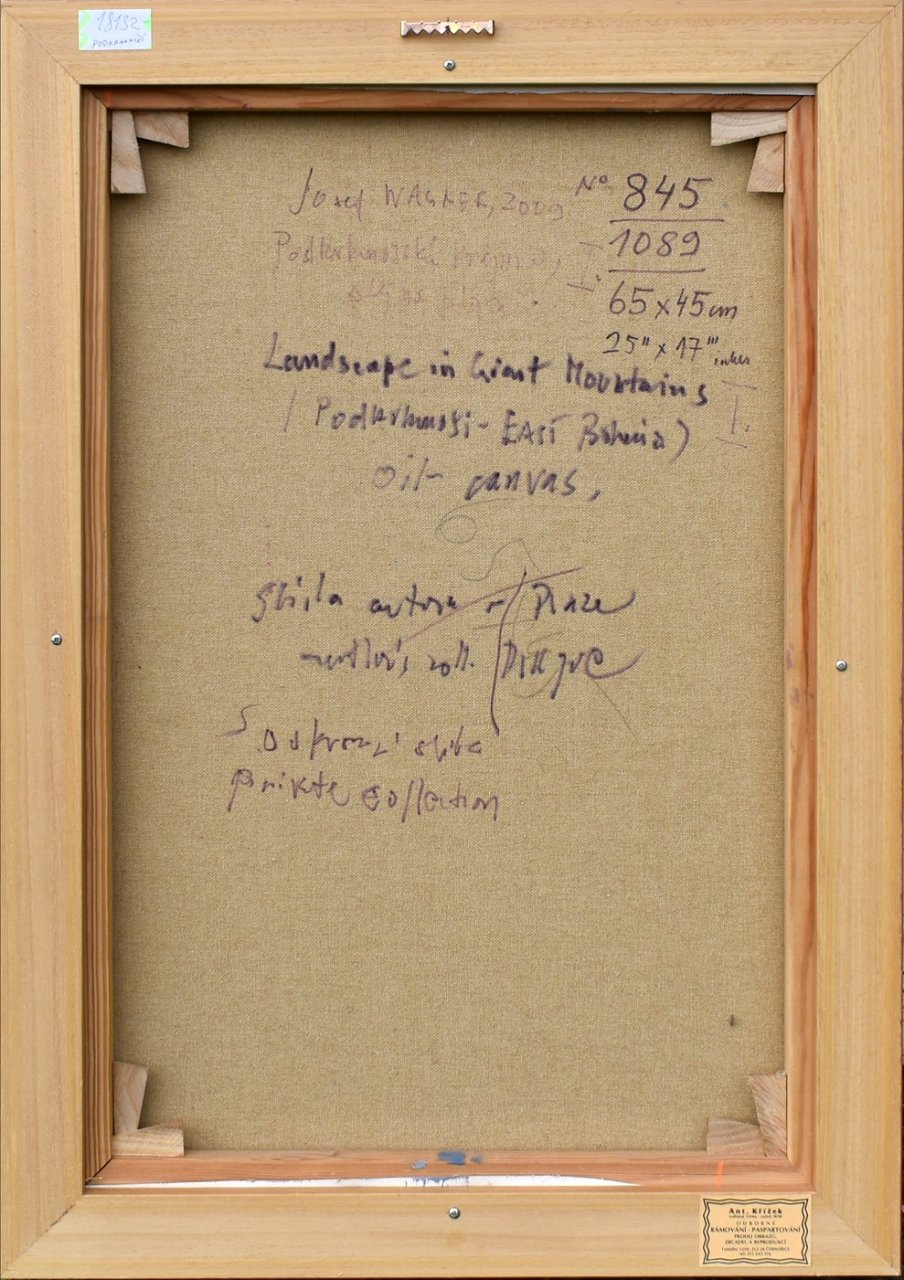 18132
PODKRKONOŠÍ
Josef WAGNER, 2009
No 845
1089
65x45cm
25" x 17"' inches
Podkrkonošská krajina, I.
olej na
Landscape in Giant Mountains I.
( Podkrkonoší - EAST Bohemia)
oil - canvas,
autora v Praze
Prague
Soukromá sbírka
Private collection
Ant. Křížek
ODBORNÉ
RÁMOVÁNÍ - PASPARTOVÁNÍ
PRODEJ OBRAZŮ,
ZRCADEL A REPRODUKCÍ